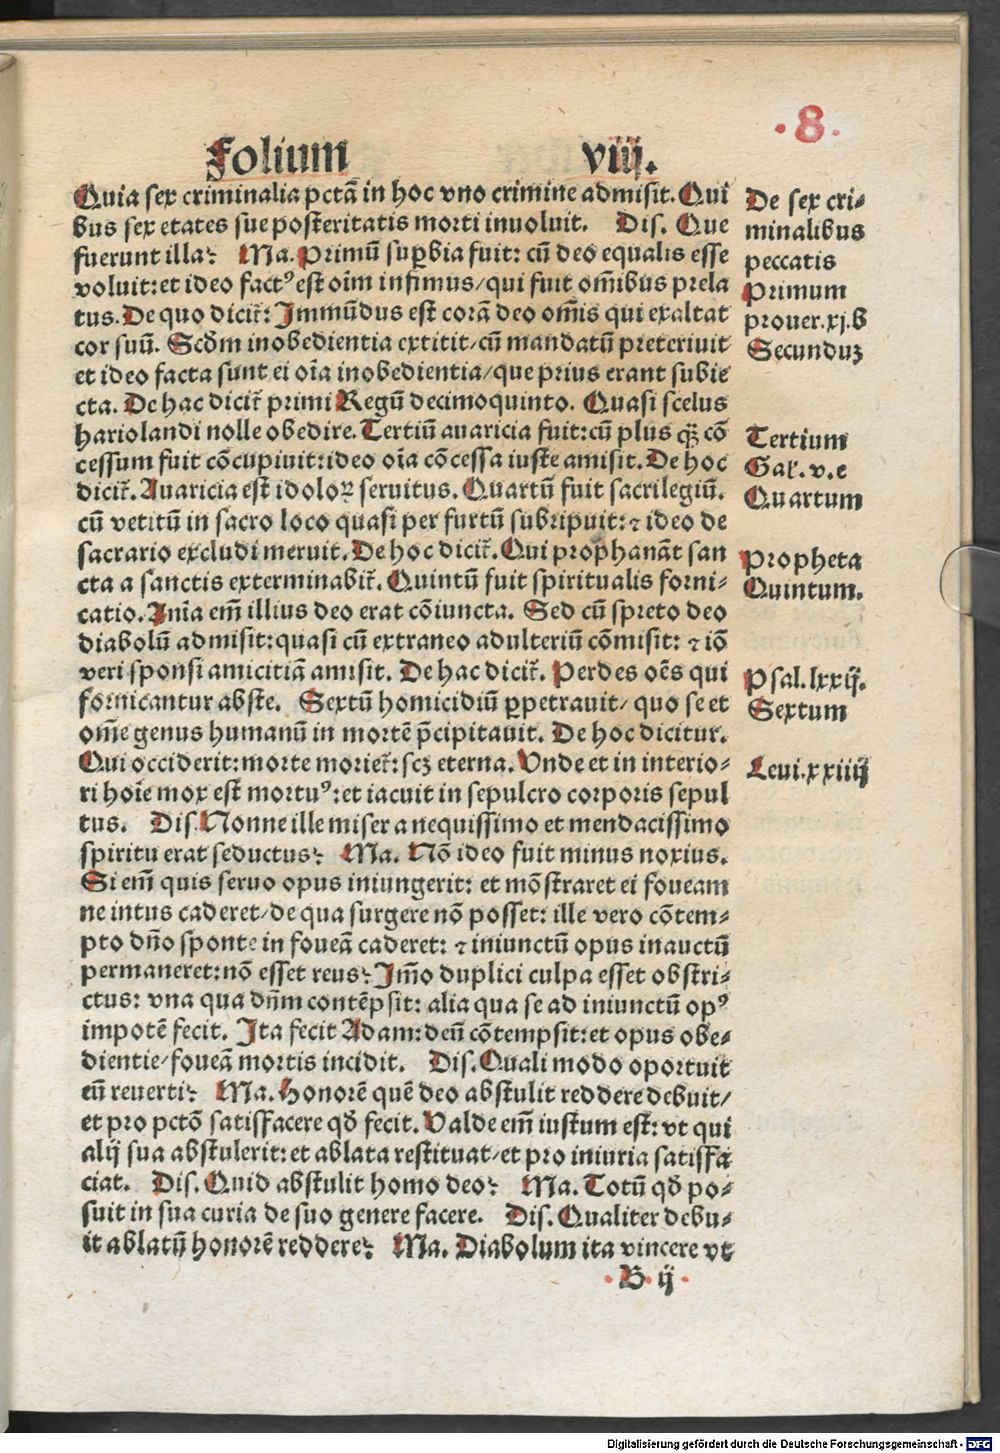 · 8 ·
Folium viij.
Quia sex criminalia pctā in hoc vno crimine admisit. Qui
bus sex etates sue posteritatis morti inuoluit. Dis. Que
fuerunt illa? Ma. Primū suꝑbia fuit: cū deo equalis esse
voluit: et ideo factꝰ est oīm infimus/qui fuit om̄ibus prela
tus. De quo dicit̄: Immūdus est corā deo om̄is qui exaltat
cor suū. Scd̄m inobedientia extitit/cū mandatū preteriuit
et ideo facta sunt ei oīa inobedientia/que prius erant subie
cta. De hac dicit̄ primi Regū decimoquinto. Quasi scelus
hariolandi nolle obedire. Tertiū auaricia fuit: cū plus qꝫ cō
cessum fuit cōcupiuit: ideo oīa cōcessa iuste amisit. De hoc
dicit̄. Auaricia est idoloꝝ seruitus. Quartū fuit sacrilegiū.
cū vetitū in sacro loco quasi per furtū subripuit: ⁊ ideo de
sacrario excludi meruit. De hoc dicit̄. Qui prophanāt san
cta a sanctis exterminabit̄. Quintū fuit spiritualis forni⸗
catio. Aīnia em̄ illius deo erat cōiuncta. Sed cū spreto deo
diabolū admisit: quasi cū extraneo adulteriū cōmisit: ⁊ iō
veri sponsi amicitiā amisit. De hac dicit̄. Perdes oēs qui
fornicantur abste. Sextū homicidiū ꝑpetrauit/ quo se et
om̄e genus humanū in mortē p̄cipitauit. De hoc dicitur.
Qui occiderit: morte moriet̄: scꝫ eterna. Vnde et in interio⸗
ri hoīe mox est mortuꝰ: et iacuit in sepulcro corporis sepul
tus. Dis. Nonne ille miser a nequissimo et mendacissimo
spiritu erat seductus? Ma. Nō ideo fuit minus noxius.
Si em̄ quis seruo opus iniungerit: et mōstraret ei foueam
ne intus caderet/de qua surgere nō posset: ille vero cōtem⸗
pto dn̄o sponte in foueā caderet: ⁊ iniunctū opus inauctū
permaneret: nō esset reus? Im̄o duplici culpa esset obstri⸗
ctus: vna qua dn̄m contēpsit: alia qua se ad iniunctū opꝰ
impotē fecit. Ita fecit Adam: deū cōtempsit: et opus obe⸗
dientie/foueā mortis incidit. Dis. Quali modo oportuit
eū reuerti? Ma. Honorē quē deo abstulit reddere debuit/
et pro pctō satisfacere qd̄ fecit. Valde em̄ iustum est: vt qui
alij sua abstulerit: et ablata restituat/et pro iniuria satisfa
ciat. Dis. Quid abstulit homo deo? Ma. Totū qd̄ po⸗
suit in sua curia de suo genere facere. Dis. Qualiter debu⸗
it ablatū honorē reddere? Ma. Diabolum ita vincere vt
· B · ij ·
De sex cri⸗
minalibus
peccatis
Primum
prouer.xj.B
Secunduꝫ
Tertium
Gal̄.v.e
Quartum
Propheta
Quintum.
Psal.lxxij.
Sextum
Leui.xxiiij
Digitalisierung gefördert durch die Deutsche Forschungsgemeinschaft - DFG